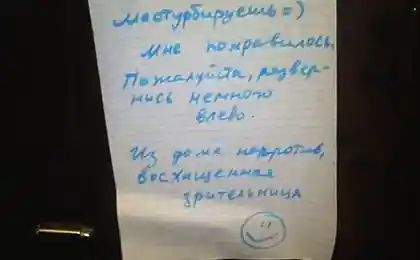 Мастурбируешь =)
Мне понравилось.
Пожалуйста, развер-
нись немного
влево.
Из дома напротив,
восхищенная
зрительница